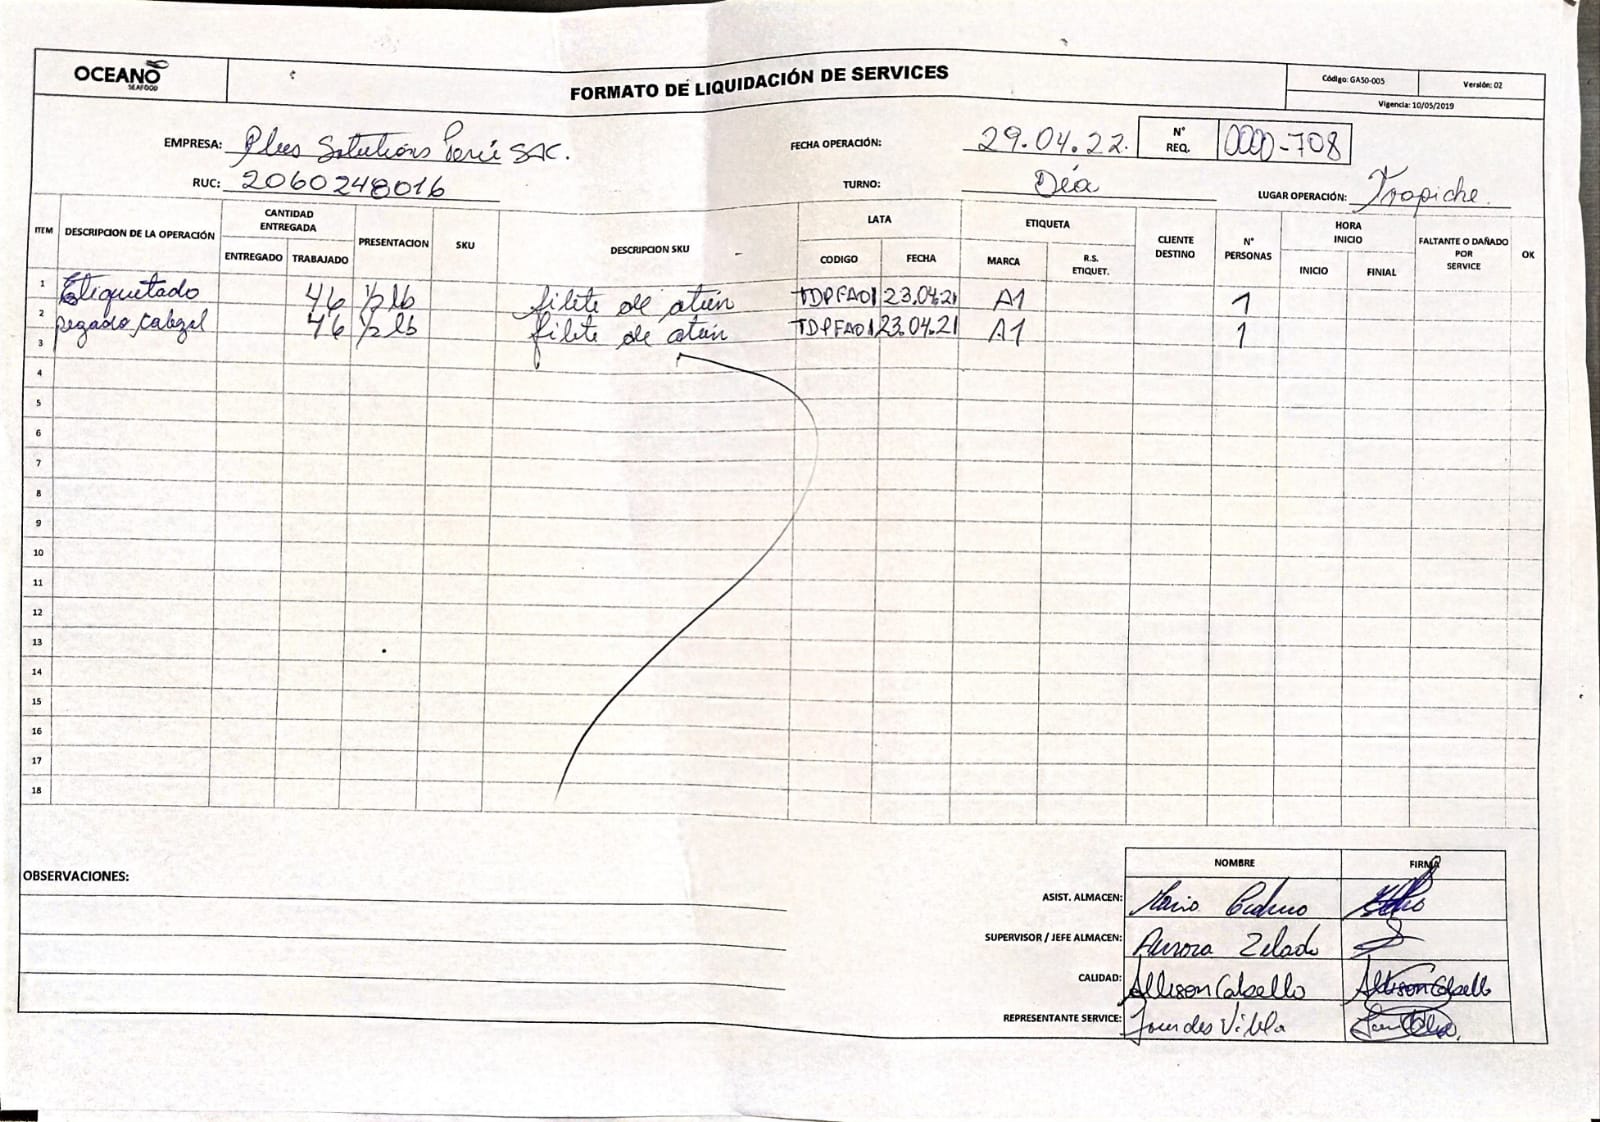 OCEANO
SEAFOOD
FORMATO DE LIQUIDACIÓN DE SERVICES
Código: GA50-005
Versión: 02
Vigencia: 10/05/2019
EMPRESA: Plus Solutions Perú SAC.
FECHA OPERACIÓN: 29.04.22.
N° REQ. 0000-708
RUC: 2060248016
TURNO: Día
LUGAR OPERACIÓN: Trapiche.
ITEM DESCRIPCION DE LA OPERACIÓN CANTIDAD ENTREGADA PRESENTACION SKU DESCRIPCION SKU LATA ETIQUETA CLIENTE DESTINO N° PERSONAS HORA INICIO FALTANTE O DAÑADO POR SERVICE OK
ENTREGADO TRABAJADO CODIGO FECHA MARCA R.S. ETIQUET. INICIO FINIAL
1 Etiquetado 46 1/2 lb filete de atún TDPFA01 23.04.21 A1 1
2 pegado cabezal 46 1/2 lb filete de atún TDPFA01 23.04.21 A1 1
3
4
5
6
7
8
9
10
11
12
13
14
15
16
17
18
OBSERVACIONES:
NOMBRE FIRMA
ASIST. ALMACEN: Mario Cedeno
SUPERVISOR / JEFE ALMACEN: Aurora Zelado
CALIDAD: Allison Cabello
REPRESENTANTE SERVICE: Lourdes Vilela